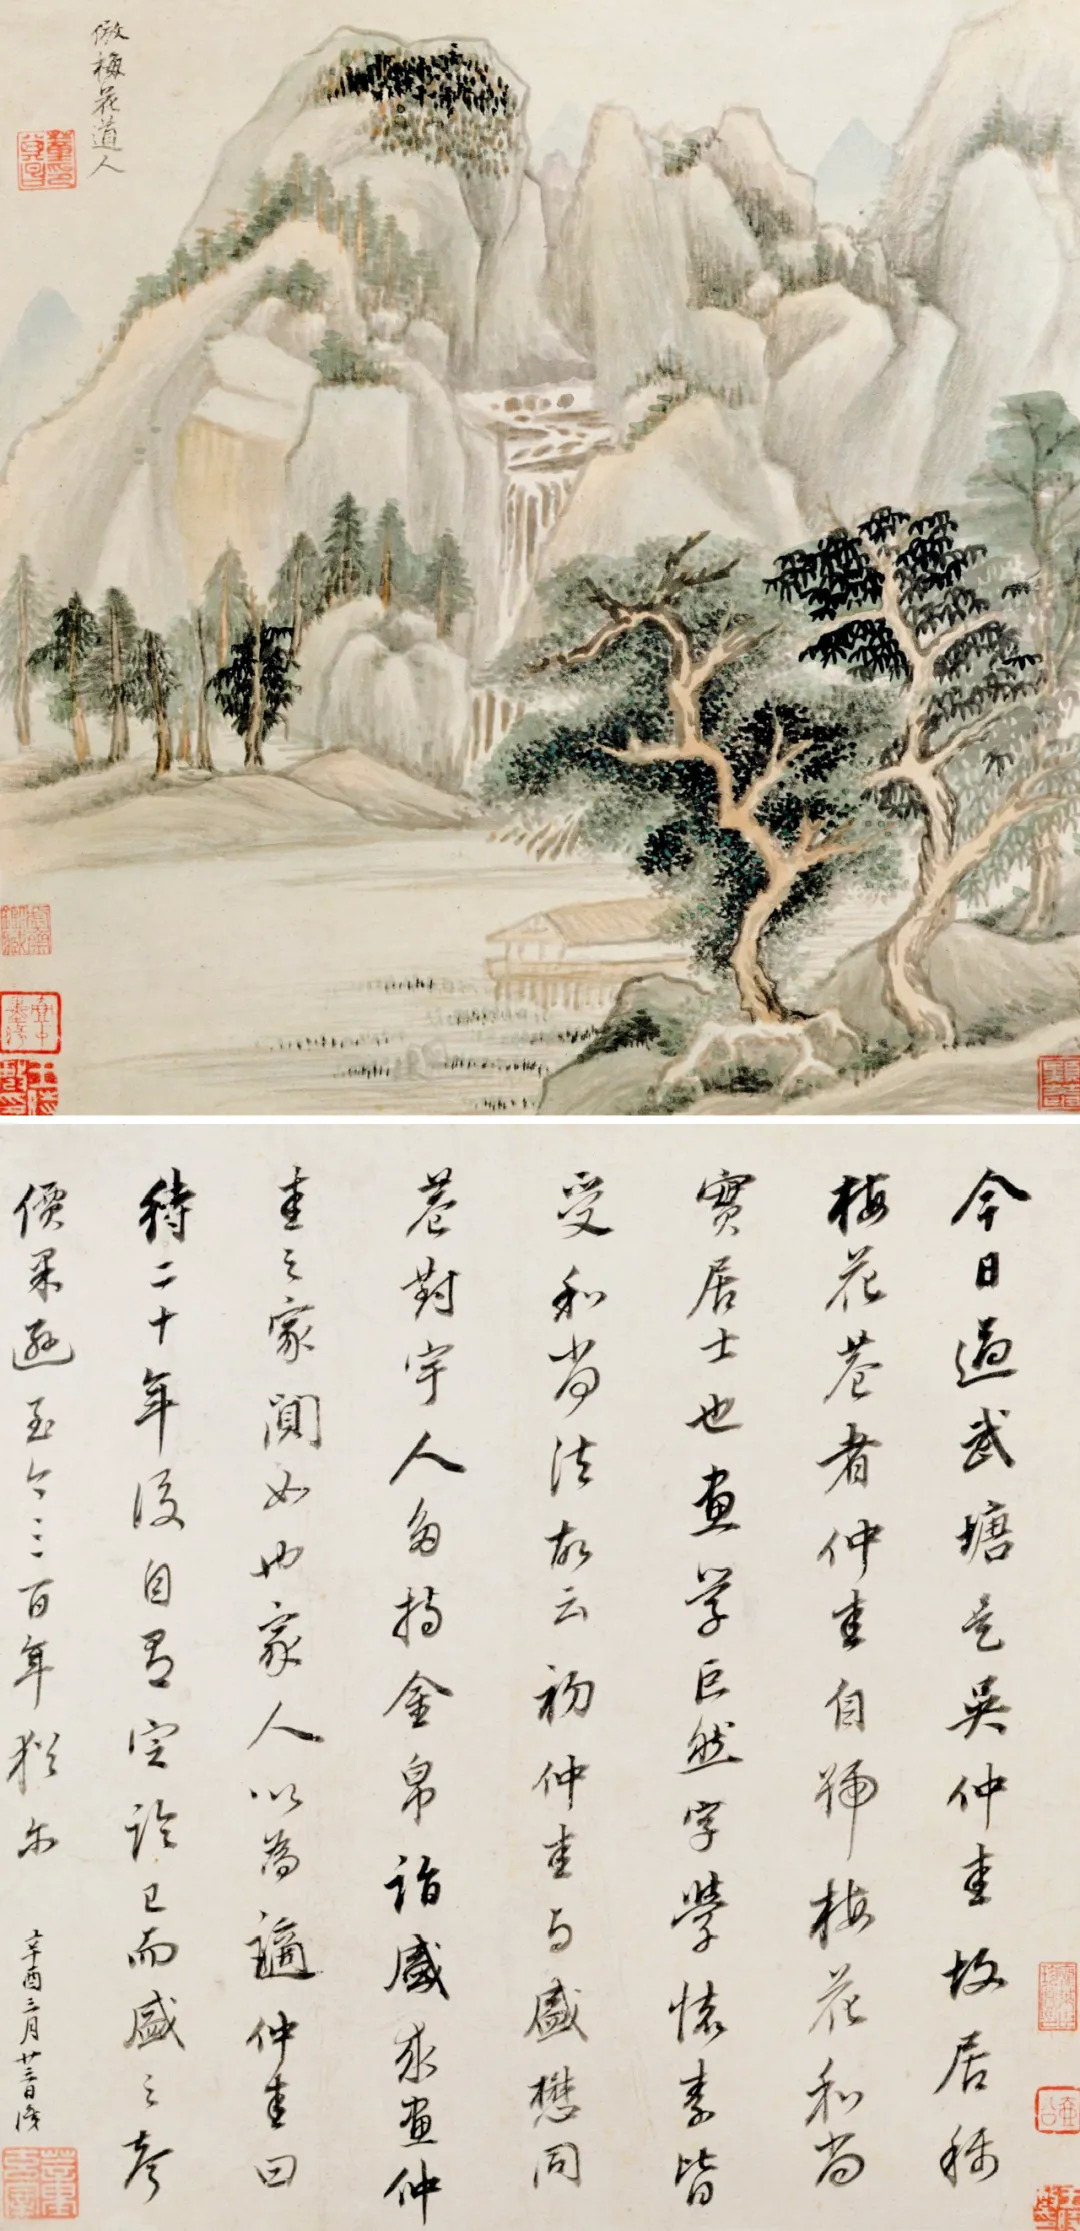 倣梅花道人
今日過武塘是吳仲圭故居稱
梅花菴者仲圭自號梅花和尚
實居士也畫學巨然字學懷素皆
受和尚法故云初仲圭与盛懋同
菴對宇人多持金帛詣盛求畫仲
圭之家闃如也家人以為讁仲圭曰
待二十年後自有定論已而盛之聲
價果遜至今三百年猶尔
辛酉三月廿三日識